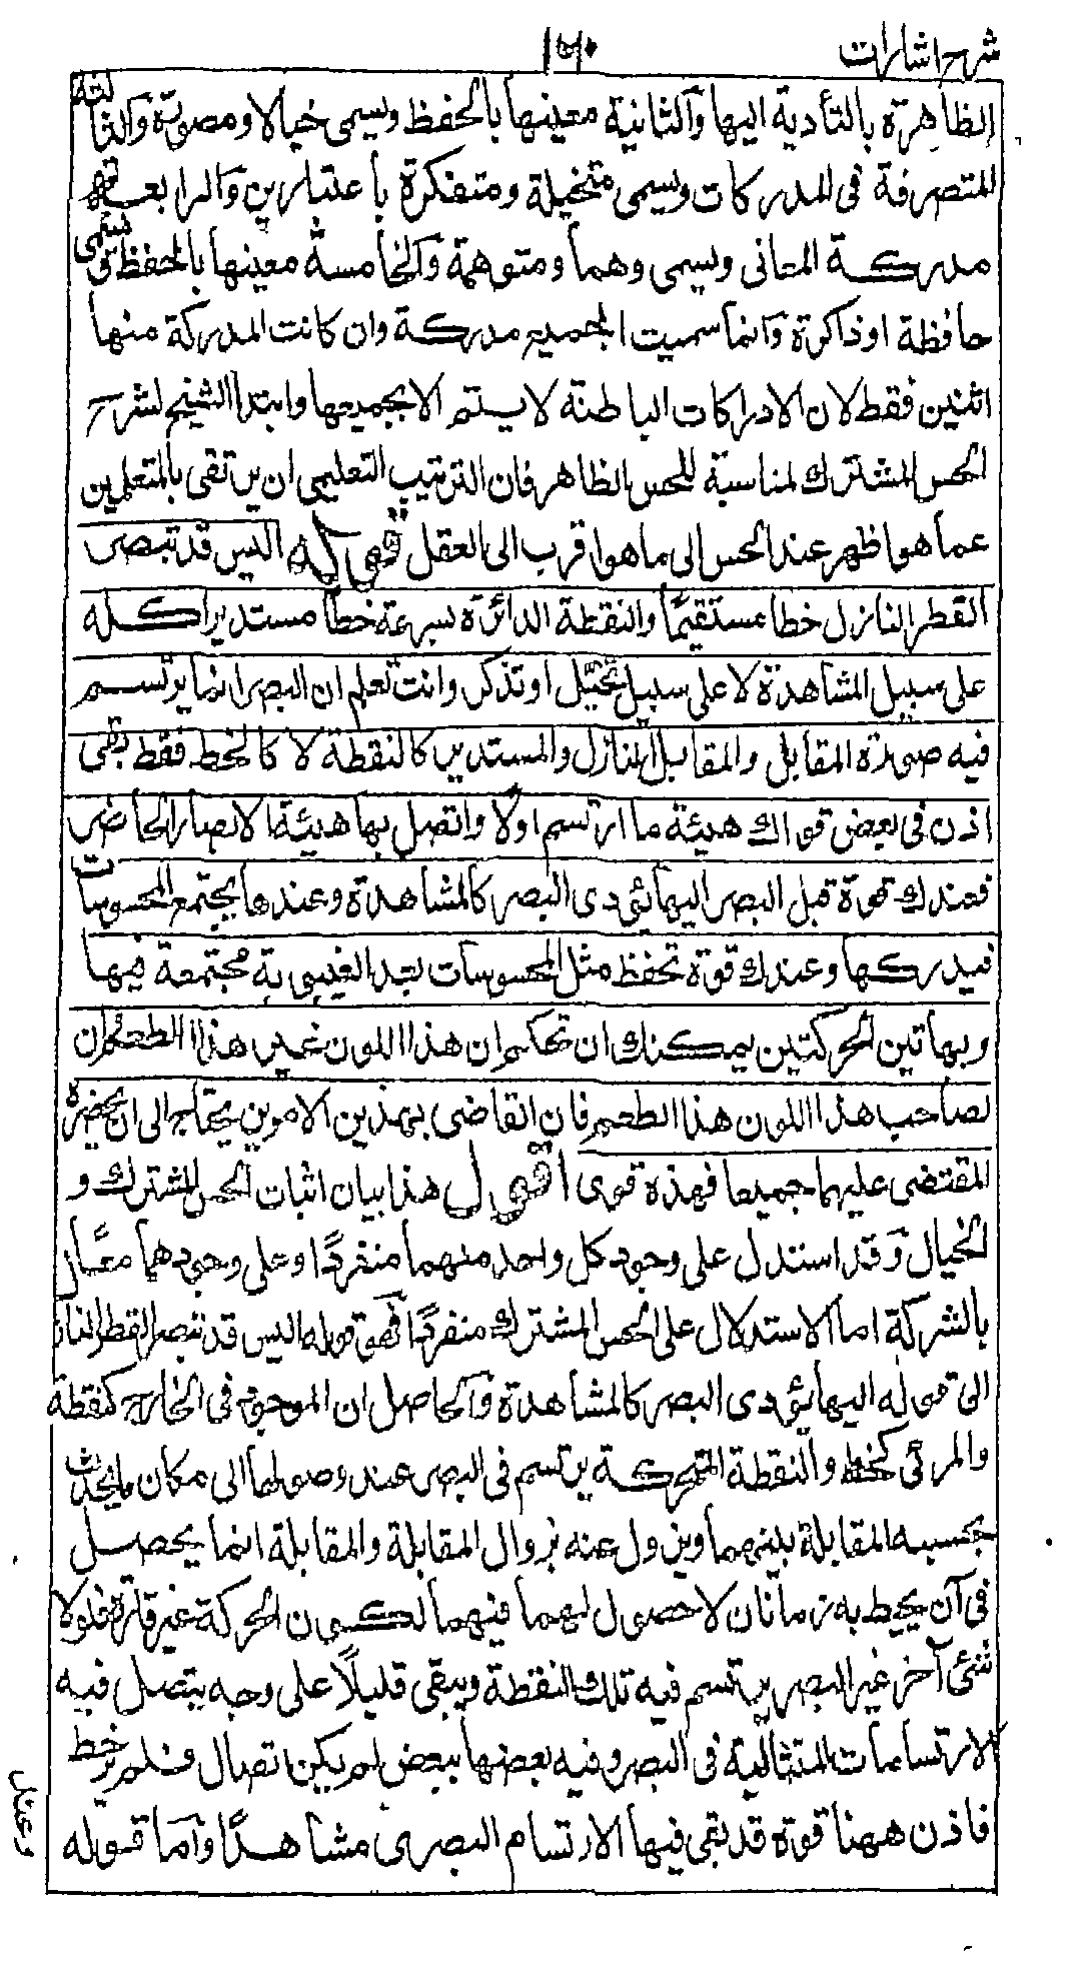 شرح اشارات
١٥٠
الظاهرة بالتأدية اليها وَالثانية معينها بالحفظ ويسمى خيالا ومصورة وَالثالثة
المتصرفة فى المدركات ويسمى متخيلة ومتفكرة باعتبارين وَالرابعة
مدركة المعانى ويسمى وهما ومتوهمة وَالخامسة معينها بالحفظ وتسمى
حافظة اوذاكرة وَانما سميت الجميع مدركة وان كانت المدركة منها
اثنين فقط لان الادراكات الباطنة لا يستتم الا بجميعها وابتدا الشيخ لشرح
الحس المشترك لمناسبة للحس الظاهر فان الترتيب التعليمى ان يرتقى بالمتعلمين
عما هو اظهر عند الحس الى ما هو اقرب الى العقل قوله اليس قد تبصر
القطر النازل خطا مستقيمًا والنقطة الدائرة بسرعة خطا مستديرا كله
على سبيل المشاهدة لا على سبيل تخيّل او تذكر وانت تعلم ان البصر انما يرتسم
فيه صورة المقابل والمقابل النازل والمستدير كالنقطة لا كالخط فقط بقى
اذن فى بعض قواك هيئة ما ارتسم اولا واتصل بها هيئة الابصار الحاضر
فعندك قوة قبل البصر اليها يؤدى البصر كالمشاهدة وعندها يجتمع المحسوسات
فيدركها وعندك قوة تحفظ مثل المحسوسات بعد الغيبوبة مجتمعة فيها
وبهاتين الحركتين يمكنك ان تحكم ان هذا اللون غير هذا الطعم وان
لصاحب هذا اللون هذا الطعم فان القاضى بهذين الامرين يحتاج الى ان يحضره
المقتضى عليهما جميعا فهذه قوى اقول هذا بيان اثبات الحس المشترك و
الخيال وَقد استدل على وجود كل واحد منهما منفردًا وعلى وجودهما معًا
بالشركة اما الاستدلال على الحس المشترك منفردًا فهو قوله اليس قد تبصر القطر النازل
الى قوله اليها يؤدى البصر كالمشاهدة وَالحاصل ان الموجود فى الخارج كنقطة
والمرئى كخط والنقطة المتحركة يرتسم فى البصر عند وصولها الى مكان ما يحدث
بحسبه المقابلة بينهما ويزول عنه بزوال المقابلة والمقابلة انما يحصل
فى آن يحيط به زمانان لا حصول لهما فيهما لكون الحركة غير قارة فلولا
شئ آخر غير البصر يرتسم فيه تلك النقطة ويبقى قليلًا على وجه يتصل فيه
الارتسامات المتتالية فى البصر وفيه بعضها ببعض لم يكن اتصال فلم ير خط
فاذن ههنا قوة قد بقى فيها الارتسام البصرى مشاهدًا وَاما قوله
وعندك